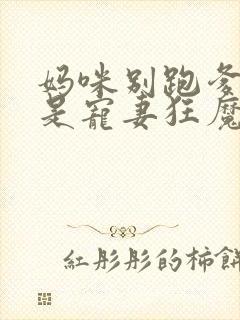 妈咪别跑爹
是寵妻狂魔
紅彤彤的柿餅